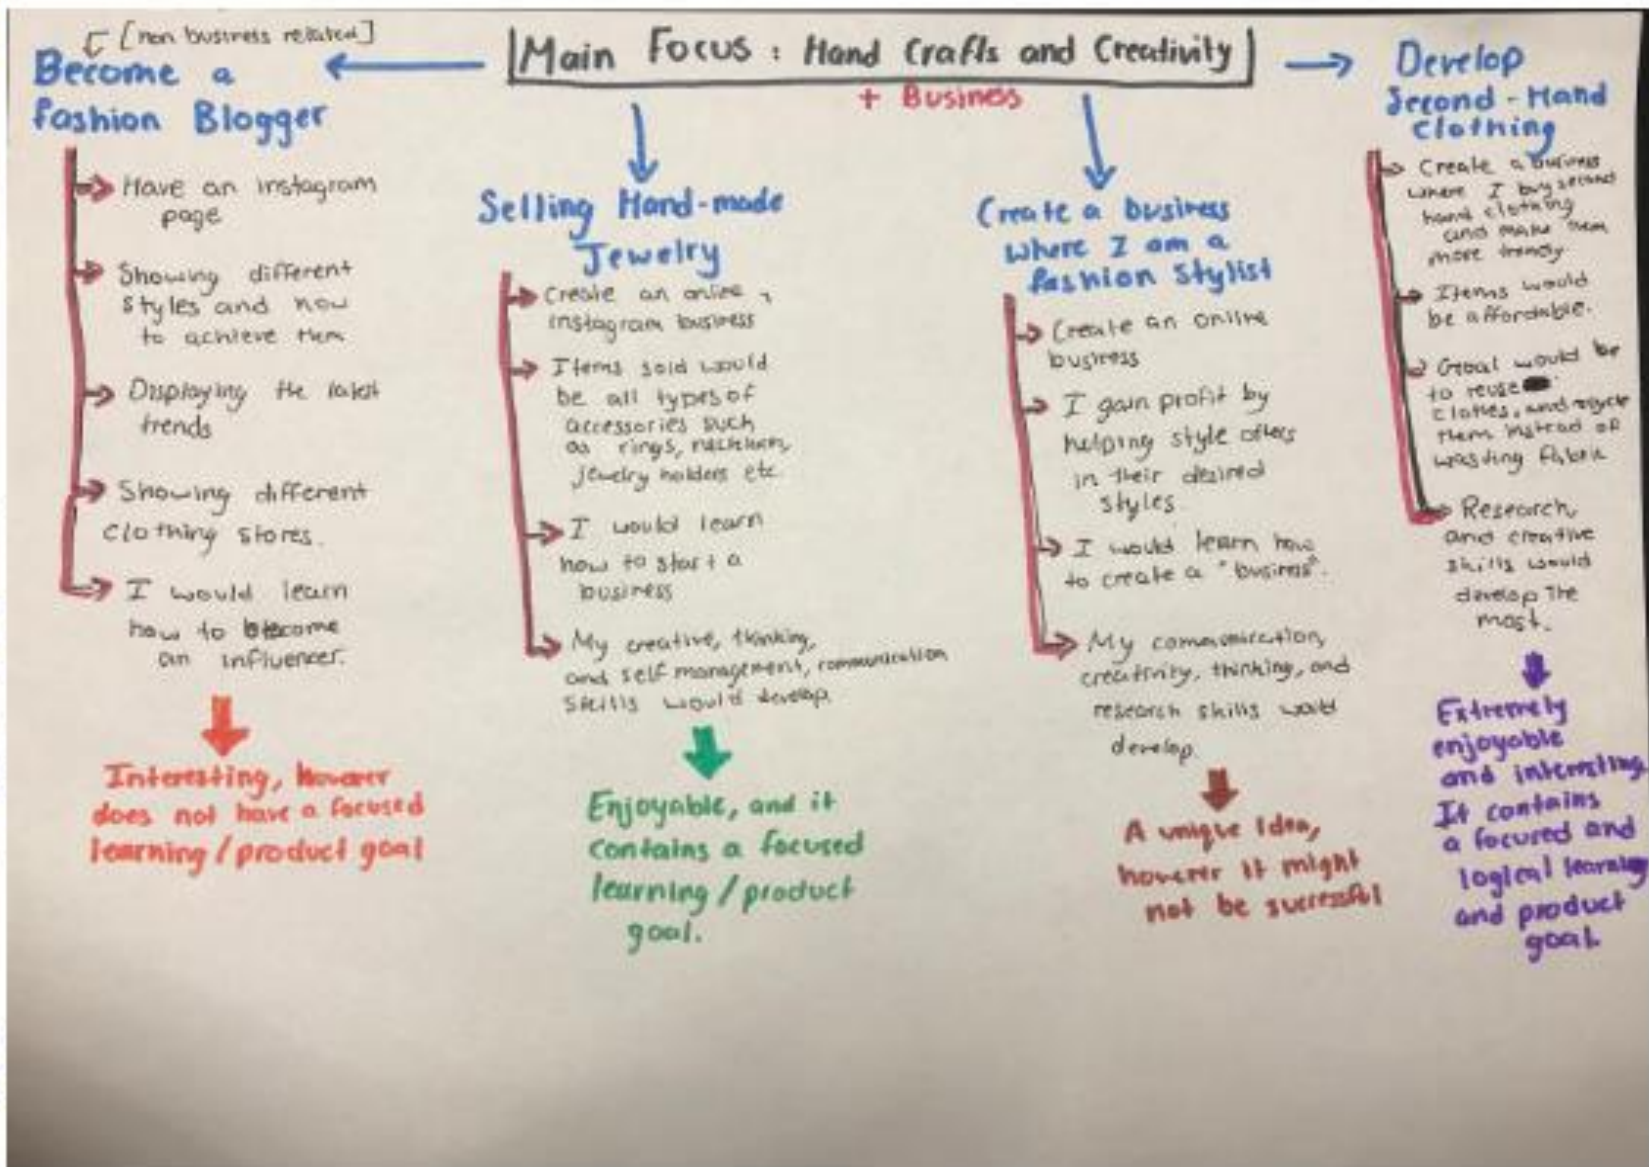 [non business related]
Main Focus : Hand Crafts and Creativity
+ Business
Become a
fashion Blogger
Have an instagram
page
Showing different
styles and how
to achieve them
Displaying the latest
trends
Showing different
clothing stores.
I would learn
how to become
an influencer.
Interesting, however
does not have a focused
learning / product goal
Selling Hand-made
Jewelry
Create an online,
instagram business
Items sold would
be all types of
accessories such
as rings,
jewelry holders etc
I would learn
how to start a
business
My creative, thinking,
and self management, communication
skills would develop.
Enjoyable, and it
contains a focused
learning / product
goal.
Create a business
where I am a
fashion Stylist
Create an online
business
I gain profit by
helping style others
in their desired
styles.
I would learn how
to create a "business".
My communication,
creativity, thinking, and
research skills would
develop.
A unique idea,
however it might
not be successful
Develop
Second-Hand
Clothing
Create a business
where I buy second
hand clothing
and make them
more trendy.
Items would
be affordable.
Goal would be
to reuse
clothes, and recycle
them instead of
wasting fabric
Research,
and creative
skills would
develop the
most.
Extremely
enjoyable
and interesting.
It contains
a focused and
logical learning
and product
goal.